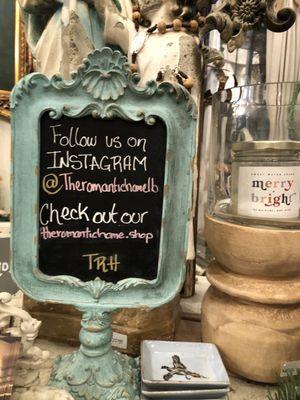 Follow us on
INSTAGRAM
@Theromantichomelb
Check out our
theromantichome.shop
TRH
SWEET WATER DECOR
merry
+
bright